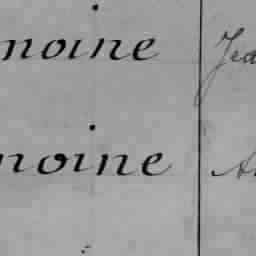 moine Jea
moine A